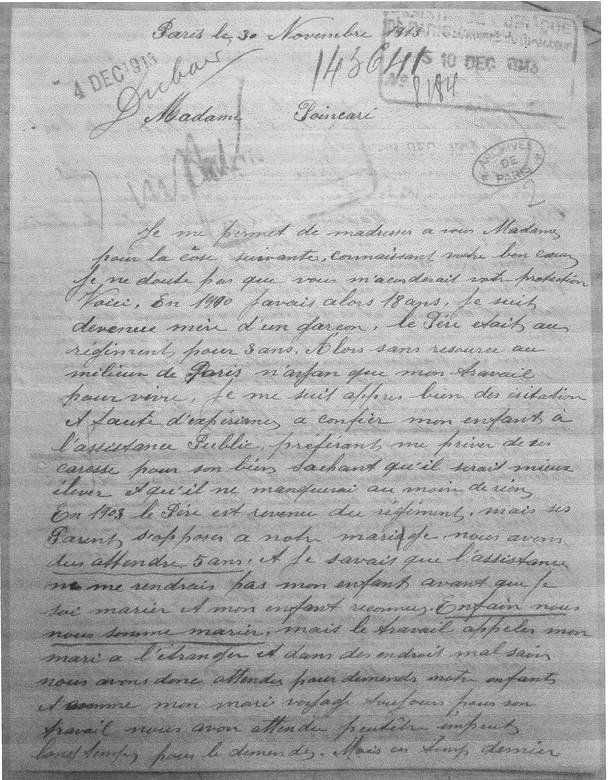 Paris le 30 Novembre 1913
4 DEC 1913
143641
DE PARIS
10 DEC 1913
No 8184
Madame Poincari
ARCHIVES
DE
PARIS
2
Je me permet de madresser a vous Madame
pour la côse suivante, connaissant votre bon cœur
Je ne doute pas que vous m'acorderait votre protection
Voici, En 1900 Javais alors 18 ans, Je suit
devenue mère d'un garçon, le Père etait au
régiment pour 3 ans, Alors sans resource au
milieux de Paris n'ayan que mon travail
pour vivre, Je me suit appres bien des esitation
et faute d'expérience a confier mon enfant à
l'assistance Public, préférant me priver de ses
caresse pour son bien sachant qu'il serait mieux
élever et qu'il ne manquerai au moin de rien,
En 1903 le Père est revenu du régiment, mais ses
Parent s'opposer a notre mariage nous avons
dus attendre 5 ans, et Je savais que l'assistance
ne me rendrais pas mon enfant avant que Je
soi marier et mon enfant reconnu, Enfain nous
nous somme marier, mais le travail appeler mon
mari a l'étranger et dans des endroit mal sain
nous avons donc attendu pour demander notre enfant
et comme mon mari voyage toujours pour son
travail nous avon attendu peutêtre unpeut
longtemps pour le demander. Mais ces temp dernier